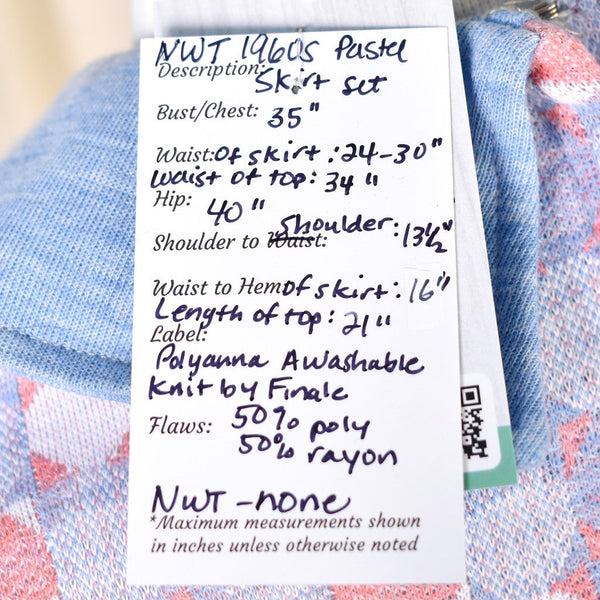 NWT 1960s Pastel
Description: Skirt set
Bust/Chest: 35"
Waist: of skirt: 24-30"
waist of top: 34"
Hip: 40"
Shoulder to Waist: Shoulder: 13½"
Waist to Hem of skirt: 16"
Length of top: 21"
Label:
Polyanna A Washable
Knit by Finale
Flaws: 50% poly
50% rayon
NWT - none
*Maximum measurements shown
in inches unless otherwise noted